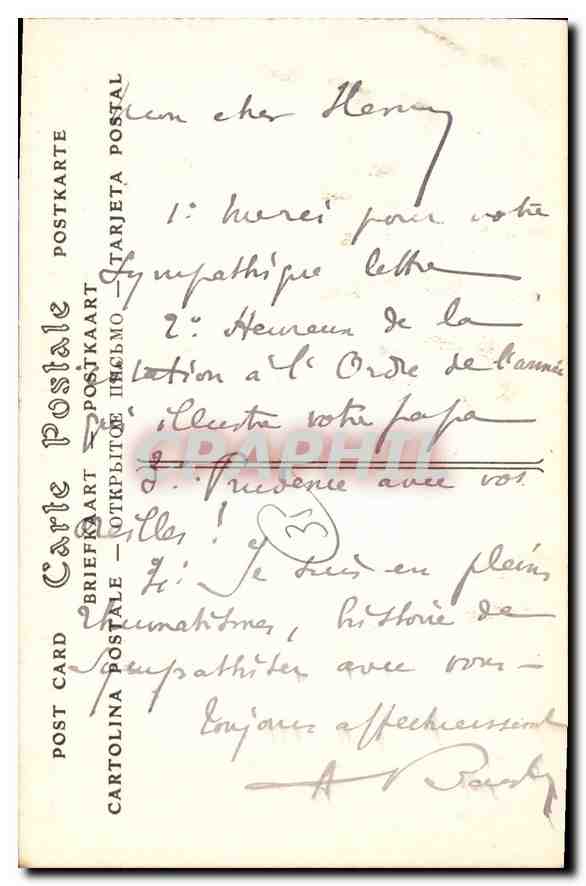 mon cher Henry
1º: merci pour votre
sympathique lettre
2º: Heureux de la
citation à l'Ordre de l'armée
qui illustre votre papa
3º: Prudence avec vos
oreilles !
4º: Je suis en pleins
Rhumatismes, histoire de
Sympathiser avec vous —
toujours affectueusement
A
13
POST CARD Carte Postale POSTKARTE
BRIEFKAART — POSTKAART
CARTOLINA POSTALE — ОТКРЫТОЕ ПИСЬМО — TARJETA POSTAL
CPAPHIL